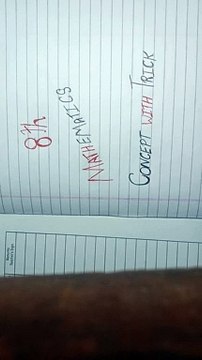 8th
MATHEMATICS
CONCEPT WITH TRICK